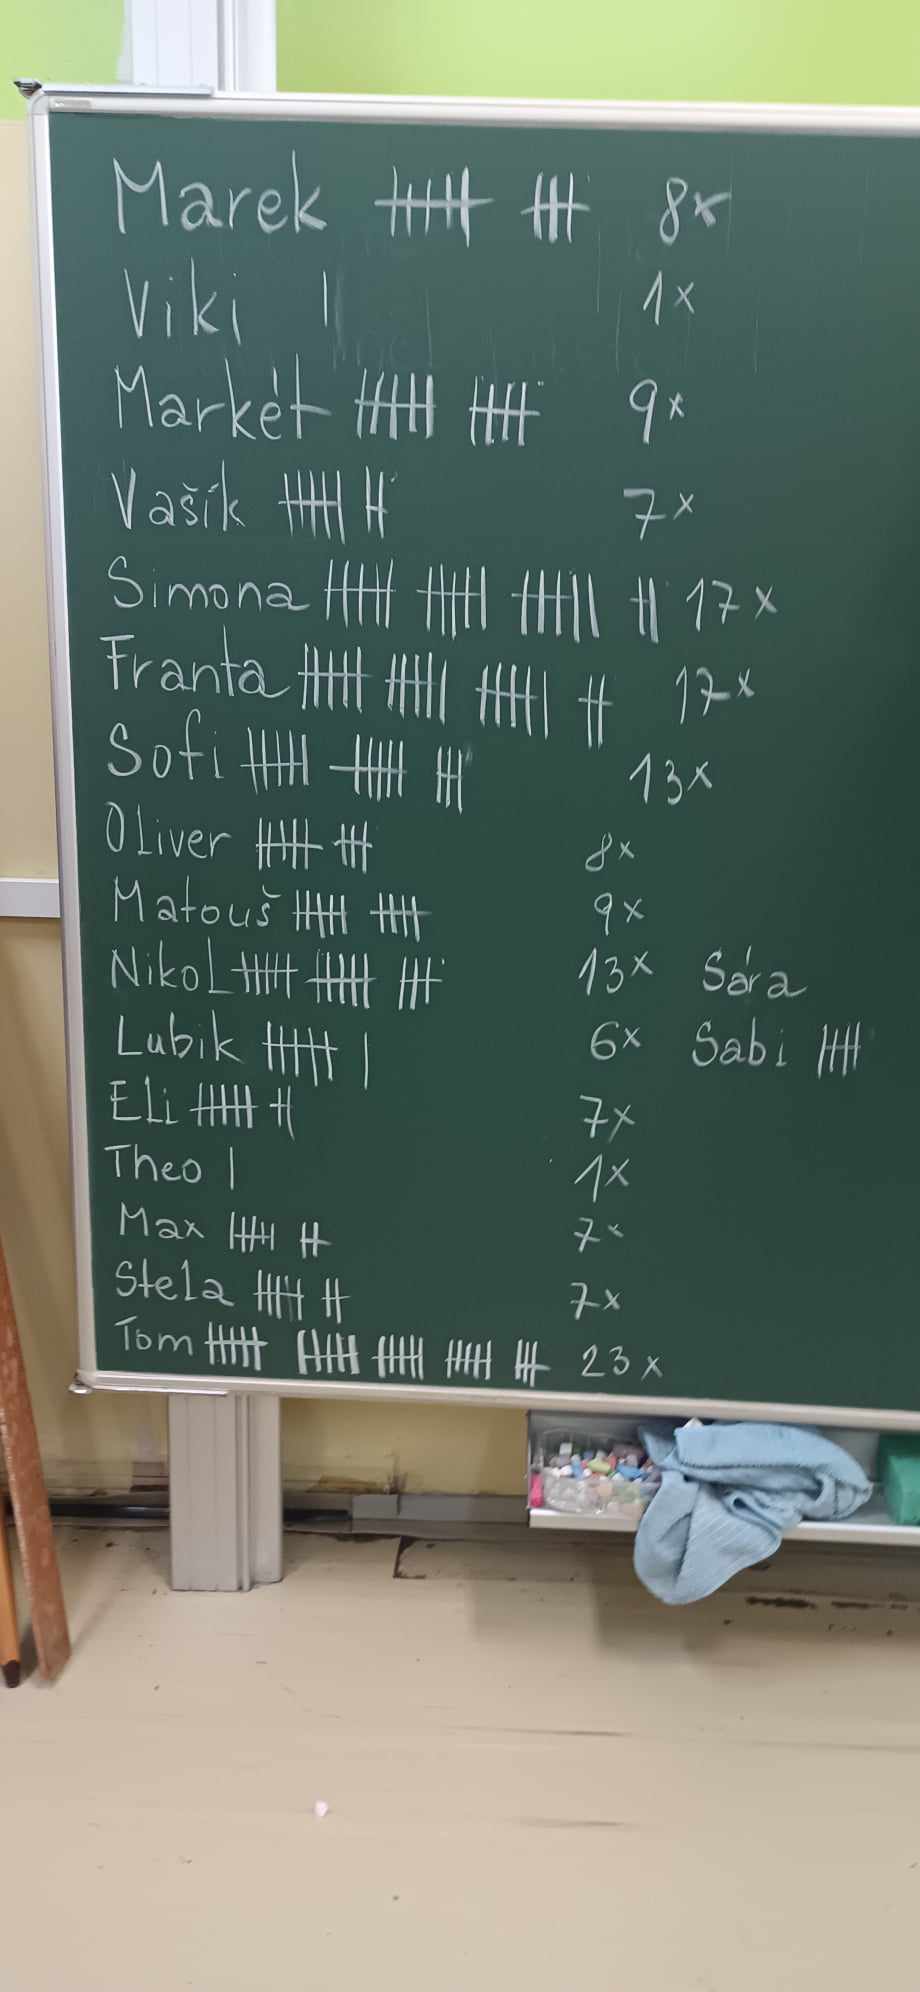 Marek 8x
Viki 1x
Markét 9x
Vašík 7x
Simona 17x
Franta 17x
Sofi 13x
Oliver 8x
Matouš 9x
Nikol 13x Sára
Lubik 6x Sabi
Eli 7x
Theo 1x
Max 7x
Stela 7x
Tom 23x